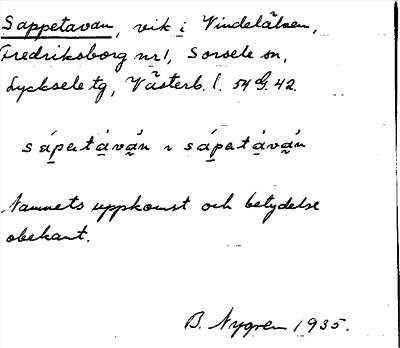 Sappetavan, vik i Vindelälven,
Fredriksborg nr 1, Sorsele sn,
Lycksele tg, Västerb. l. 54 G. 42.
sápatàván ı sápatàván
Namnets uppkomst och betydelse
obekant.
B. Nygren 1935.